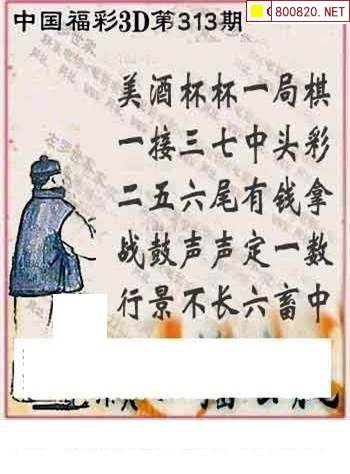 800820.NET
中国福彩3D第313期
美酒杯杯一局棋
一接三七中头彩
二五六尾有钱拿
战鼓声声定一数
行景不长六畜中